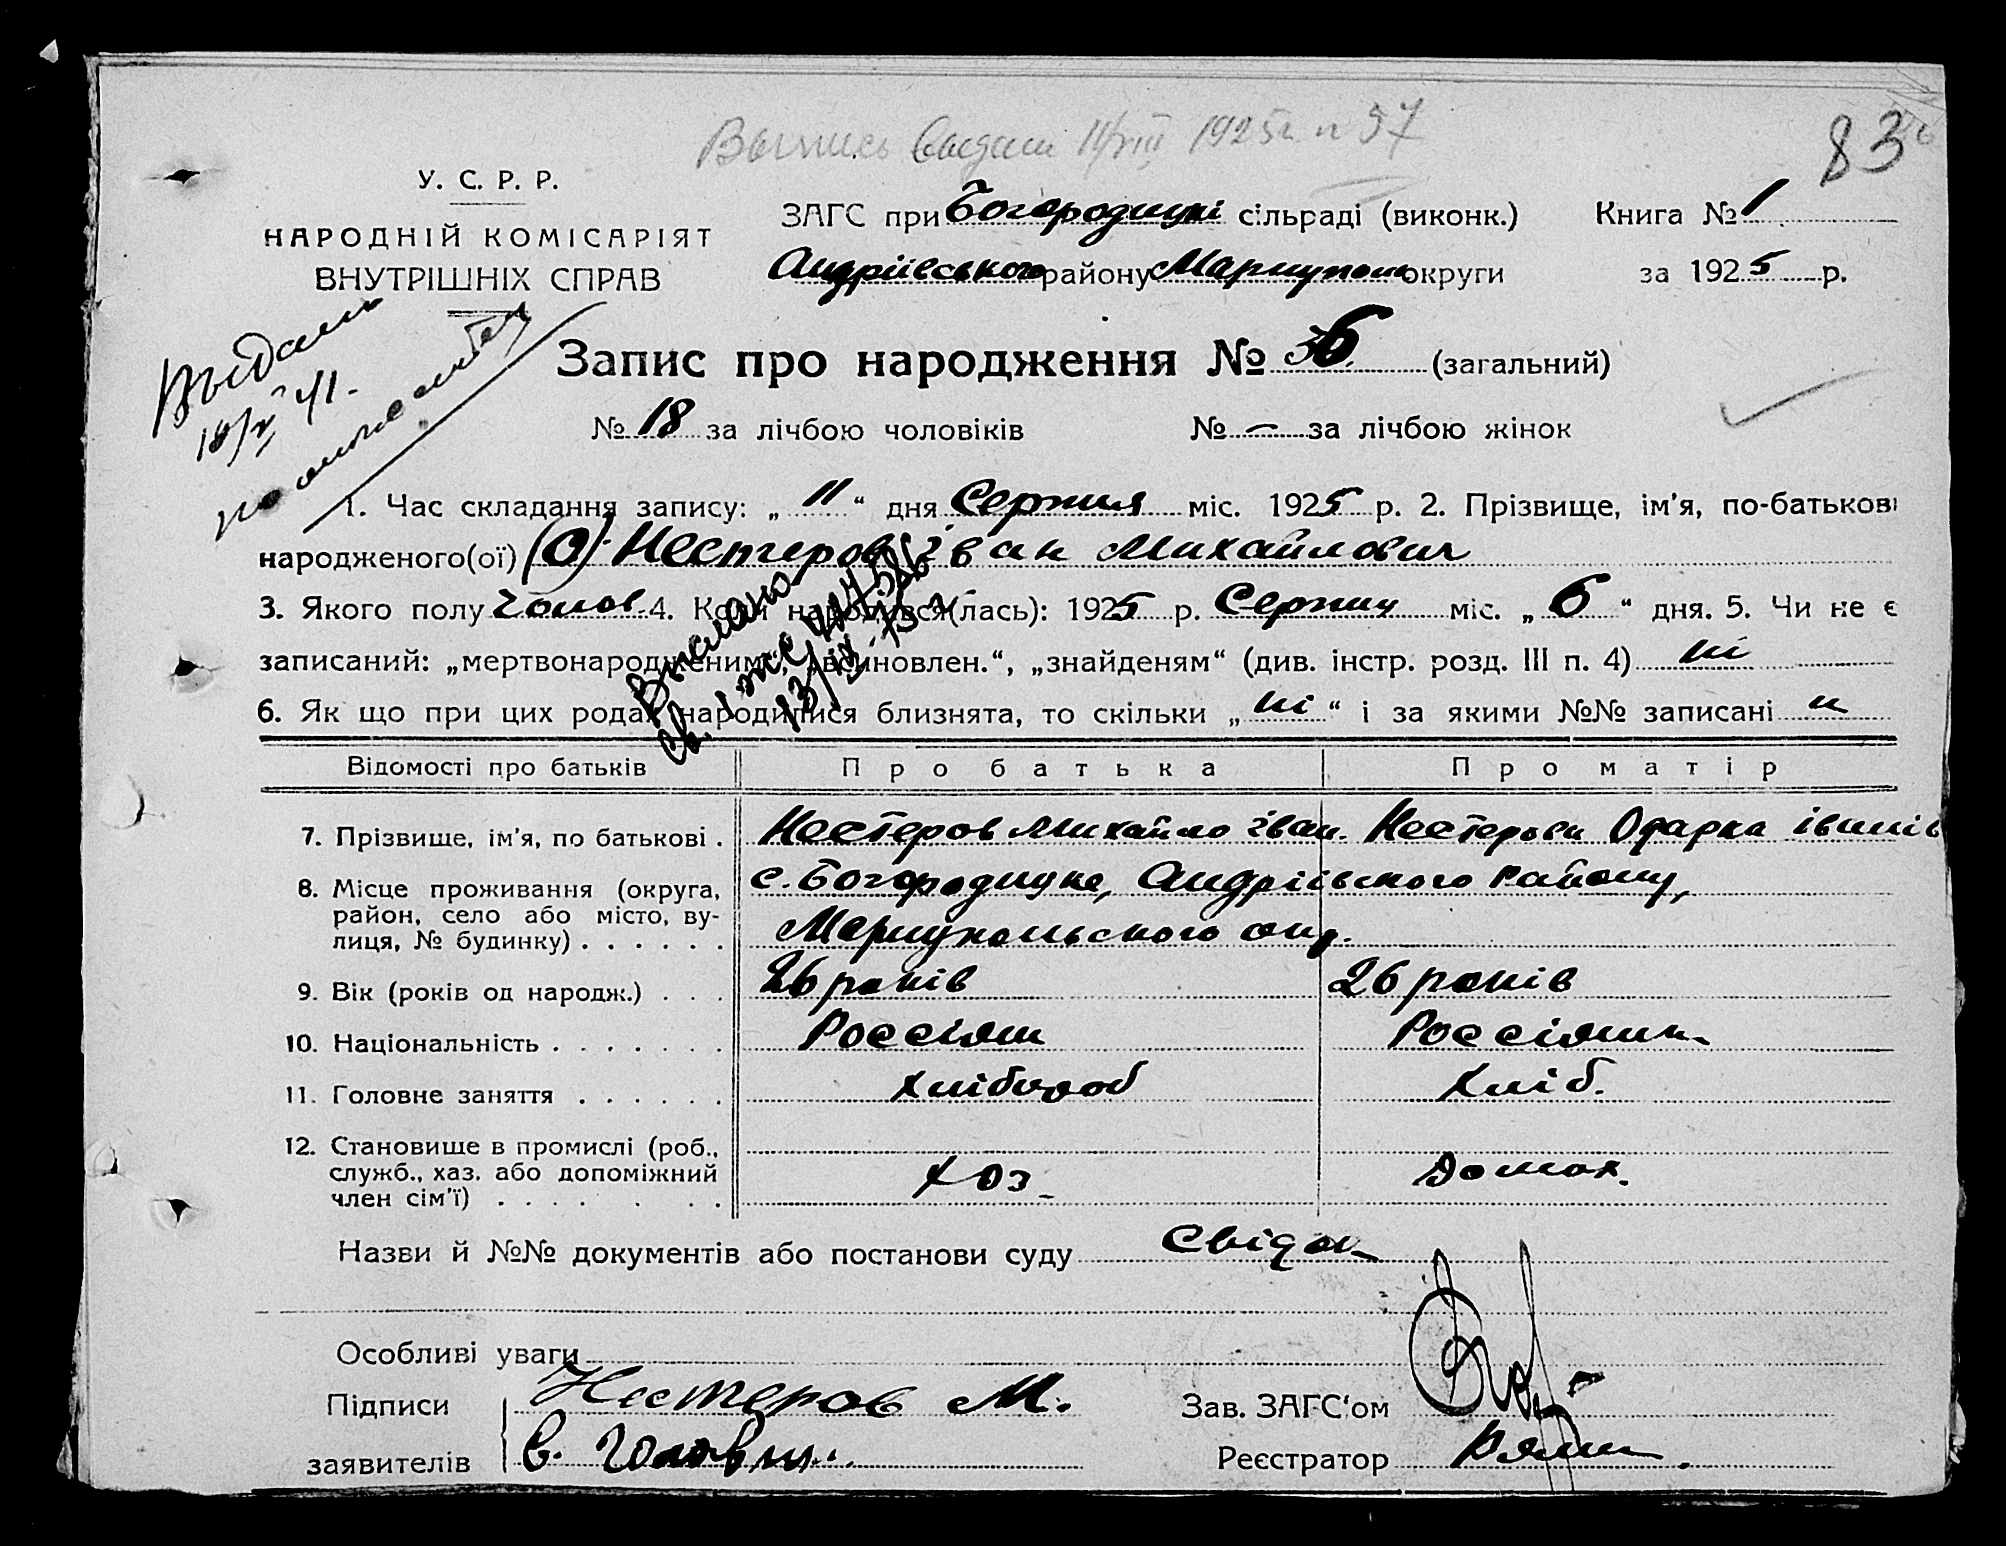 Выпись выдана 11/VIII 1925 г. № 57
83
У. С. Р. Р.
НАРОДНІЙ КОМІСАРІЯТ
ВНУТРІШНІХ СПРАВ
ЗАГС при Богородицкі сільраді (виконк.) Книга № 1
Андріївського району Мариуполь округи за 1925 р.
Выдано
41.
Запис про народження № 36 (загальний)
№ 18 за лічбою чоловіків № — за лічбою жінок
1. Час складання запису: „ 11 “ дня Серпня міс. 1925 р. 2. Прізвище, ім'я, по-батькові
народженого(ої) (О). Нестеров Іван Михайлович
3. Якого полу Чолов. 4. Коли народився(лась): 1925 р. Серпня міс. „ 6 “ дня. 5. Чи не є
записаний: „мертвонародженим“, „всиновлен.“, „знайденям“ (див. інстр. розд. III п. 4) ні
6. Як що при цих родах народилися близнята, то скільки „ ні “ і за якими №№ записані н
Выслано
св.
13/IX
Відомості про батьків Про батька Про матір
7. Прізвище, ім'я, по батькові . Нестеров Михайло Іван. Нестерова Одарка Іванів
8. Місце проживання (округа, район, село або місто, вулиця, № будинку) . . . . . . с. Богородицке, Андріївського району,
Мариупольського окр.
9. Вік (років од народж.) . . . 26 років 26 років
10. Національність . . . . . . . Россіян Россіянк.
11. Головне заняття . . . . . . Хлібороб Хліб.
12. Становище в промислі (роб., служб., хаз. або допоміжний член сім'ї) . . . . . . . Хоз. Домох.
Назви й №№ документів або постанови суду Свідок
Особливі уваги
Підписи Нестеров М. Зав. ЗАГС'ом
заявителів Реєстратор